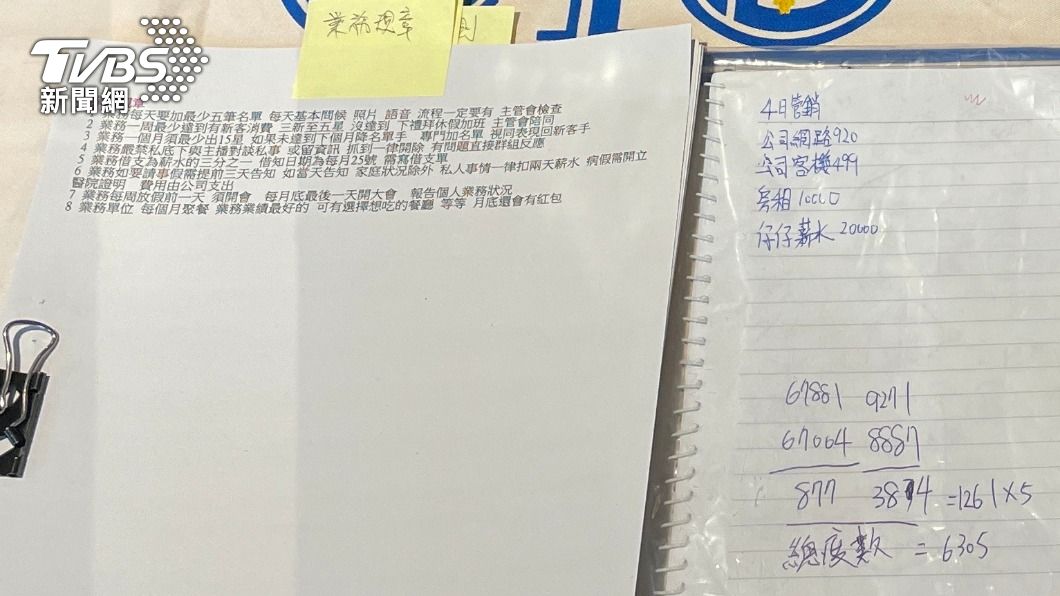 TVBS
新聞網
業務規章
則
業務每天要加最少五筆名單 每天基本問候 照片 語音 流程一定要有 主管會檢查
2 業務一周最少達到有新客消費 三新至五星 沒達到 下禮拜休假加班 主管會陪同
3 業務一個月須最少出15星 如果未達到下個月降名單手 專門加名單 視同表現回新客手
4 業務嚴禁私底下與主播對談私事 或留資訊 抓到一律開除 有問題直接群組反應
5 業務借支為薪水的三分之一 借知日期為每月25號 需寫借支單
6 業務如要請事假需提前三天告知 如當天告知 家庭狀況除外 私人事情一律扣兩天薪水 病假需開立
醫院證明 費用由公司支出
7 業務每周放假前一天 須開會 每月底最後一天開大會 報告個人業務狀況
8 業務單位 每個月聚餐 業務業績最好的 可有選擇想吃的餐廳 等等 月底還會有紅包
4月管銷
公司網路920
公司客機499
房租10000
仔仔薪水20000
67881 9271
67004 8887
877 384 =1261×5
總度數 =6305